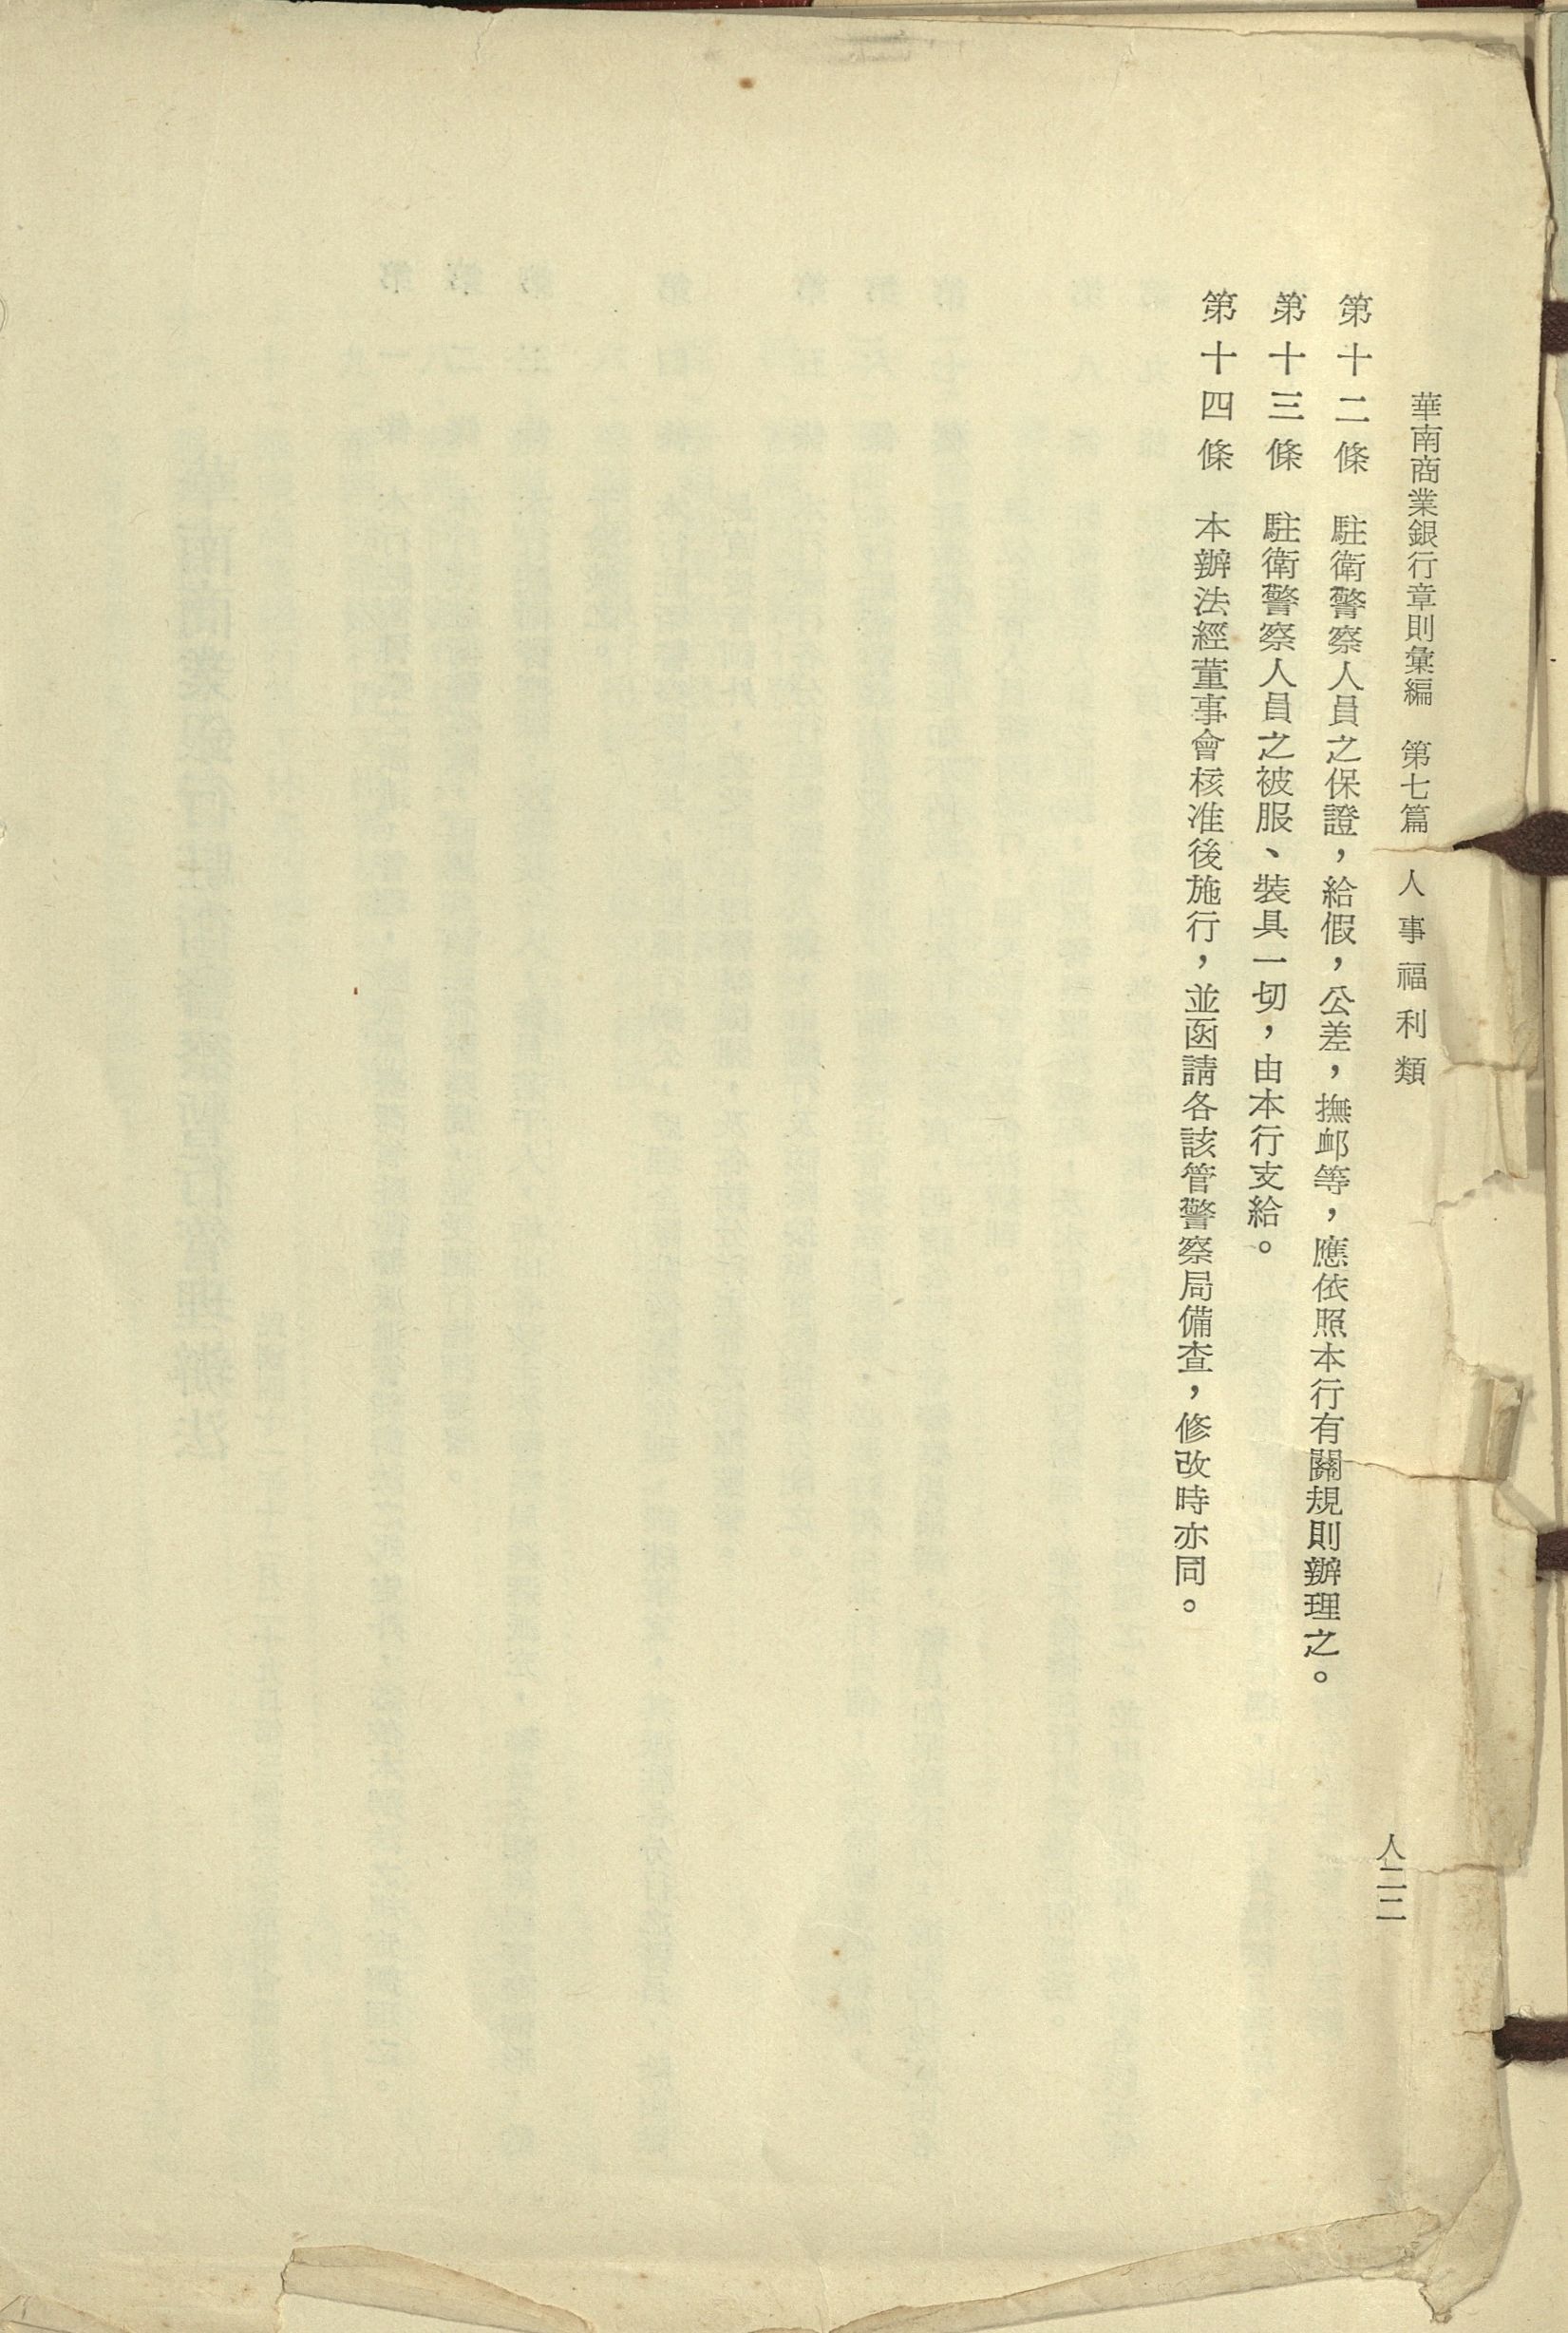 華南商業銀行章則彙編　第七篇　人事福利類
人二二
第十二條　駐衛警察人員之保證，給假，公差，撫卹等，應依照本行有關規則辦理之。
第十三條　駐衛警察人員之被服、裝具一切，由本行支給。
第十四條　本辦法經董事會核准後施行，並函請各該管警察局備查，修改時亦同。